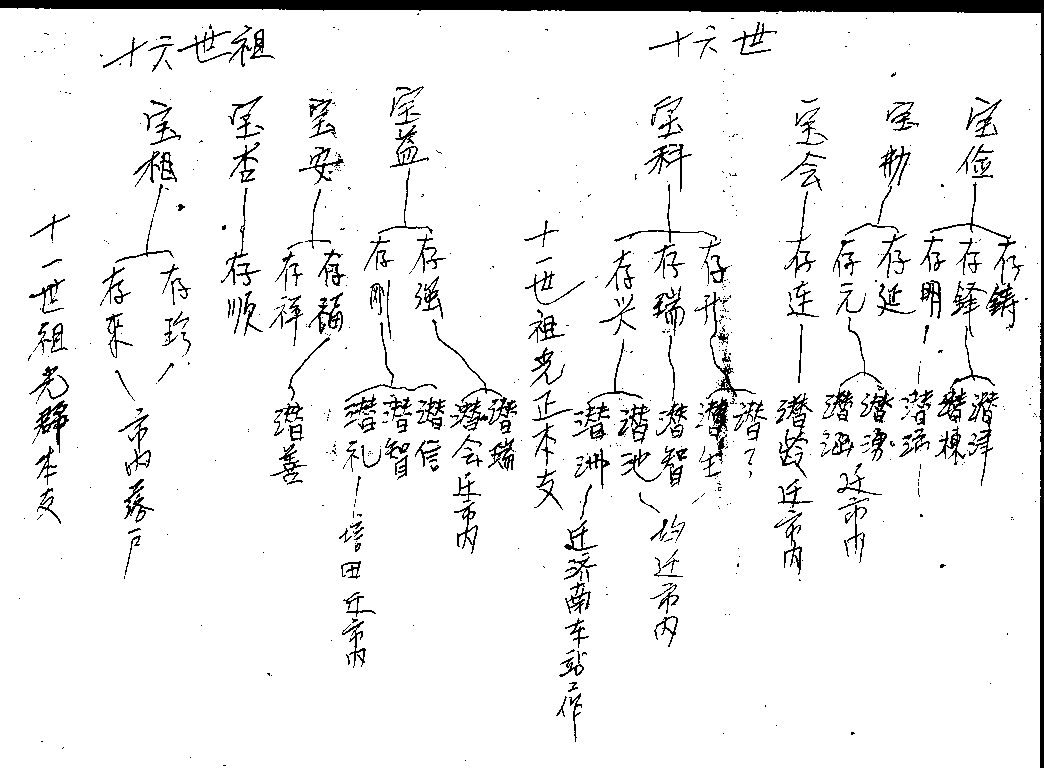 十六世祖
十六世
宝相
宝杏
宝安
宝益
宝科
宝会
宝勋
宝俭
十一世祖光群本支
存来
存珍
存顺
存祥
存福
存刚
存强
十一世祖光正本支
存兴
存瑞
存升
存连
存元
存延
存明
存铎
存铸
市内落户
潜善
潜礼
潜智
潜信
潜会迁市内
潜瑞
潜洲
潜池
潜智
潜生
潜?
潜龄迁市内
潜涵
潜湧
迁市内
潜瑶
潜栋
潜泽
培田迁市内
迁济南车站工作
均迁市内